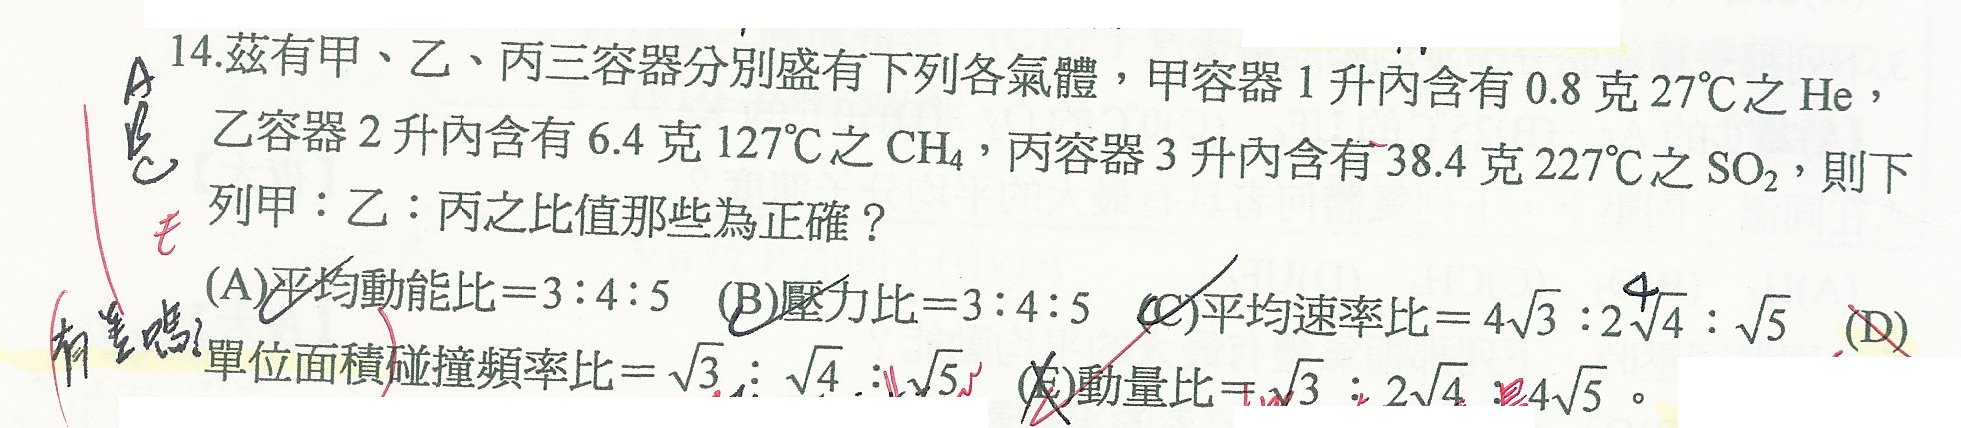 14.茲有甲、乙、丙三容器分別盛有下列各氣體，甲容器 1 升內含有 0.8 克 27℃之 He，
A
B
C
乙容器 2 升內含有 6.4 克 127℃之 CH₄，丙容器 3 升內含有 38.4 克 227℃之 SO₂，則下
列甲：乙：丙之比值那些為正確？
E
(A)平均動能比＝3：4：5 (B)壓力比＝3：4：5 (C)平均速率比＝4√3：2√4：√5 (D)
4
有差嗎?
單位面積碰撞頻率比＝√3：√4：√5 (E)動量比＝√3：2√4：4√5。